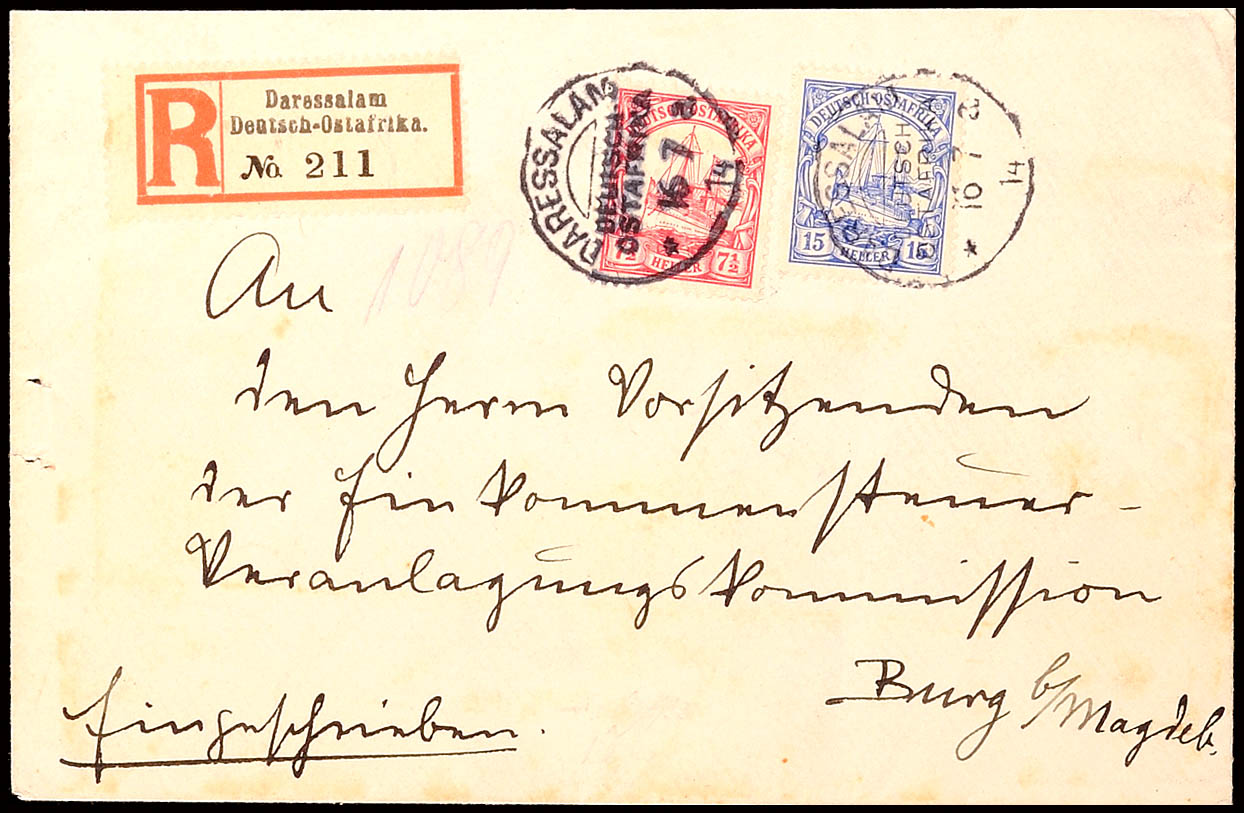 R
Daressalam
Deutsch-Ostafrika.
No. 211
DARESSALAM
DEUTSCH-
OSTAFRIKA
16 7
14
DEUTSCH OSTAFRIKA
7½ HELLER 7½
DEUTSCH OSTAFRIKA
15 HELLER 15
10 7
14
1089
An
den Herrn Vorsitzenden
der Einkommensteuer-
Veranlagungskommission
Burg b/Magdeb.
Eingeschrieben.